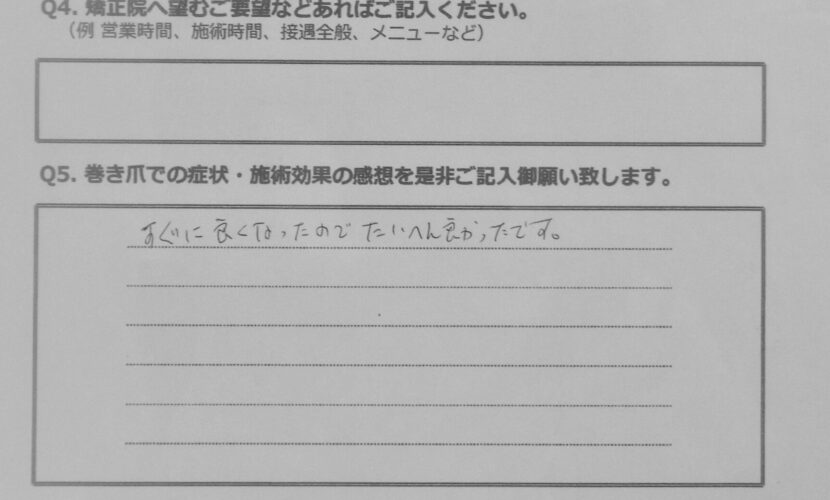 Q4. 矯正院へ望むご要望などあればご記入ください。
（例 営業時間、施術時間、接遇全般、メニューなど）
Q5. 巻き爪での症状・施術効果の感想を是非ご記入御願い致します。
すぐに良くなったので たいへん良かったです。